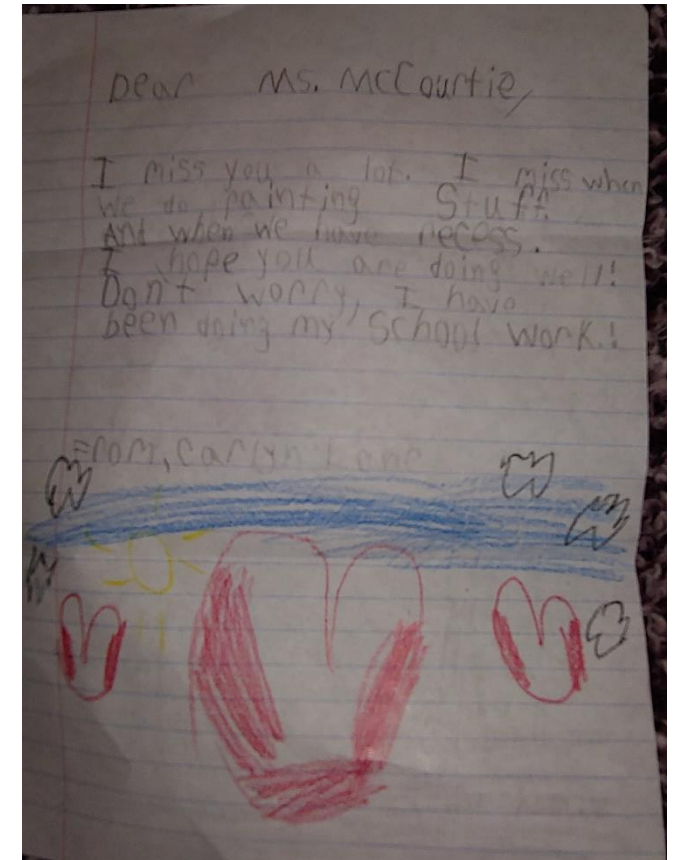 Dear Ms. McCourtie,
I miss you a lot. I miss when
we do painting Stuff.
And when we have recess.
I hope you are doing well!
Don't worry, I have
been doing my School work.!
From, Carlyn Lane